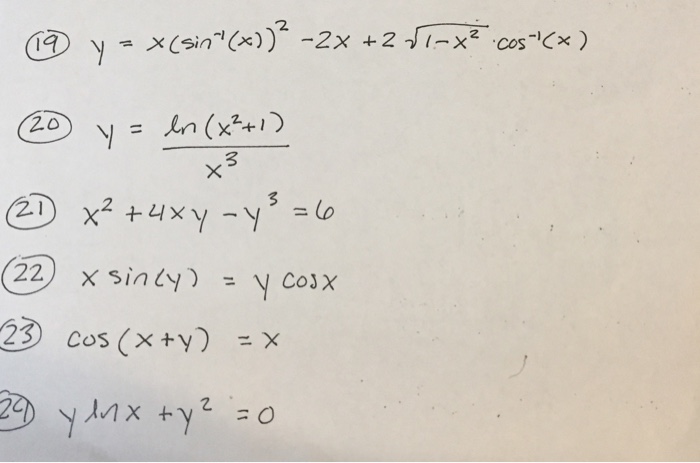 (19) y = x(sin⁻¹(x))² - 2x + 2 √(1-x²) · cos⁻¹(x)
(20) y = ln(x²+1) / x³
(21) x² + 4xy - y³ = 6
(22) x sin(y) = y cosx
(23) cos(x+y) = x
(24) y lnx + y² = 0